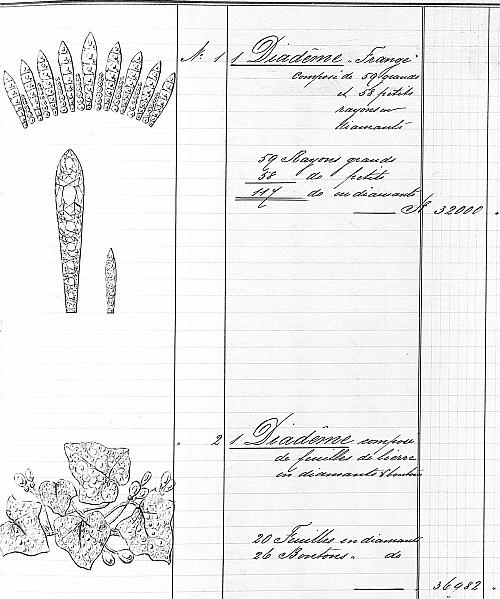 N. 1 1 Diadême "Frange"
Composé de 59 grands
et 58 petits
rayons en
diamants
59 Rayons grands
58 do petits
117 do en diamants
32000
2 1 Diadême composé
de feuilles de lierre
en diamants &
20 Feuilles en diamants
26 Boutons " do
36982